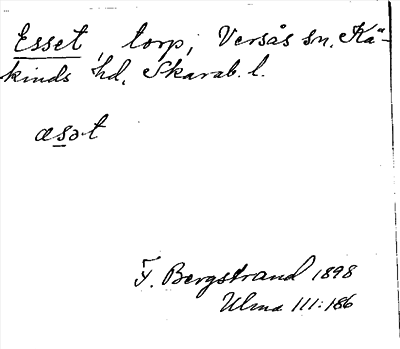 Esset, torp, Versås sn, Kå-
kinds hd, Skarab. l.
æsət
F. Bergstrand 1898
Ulma 111:186